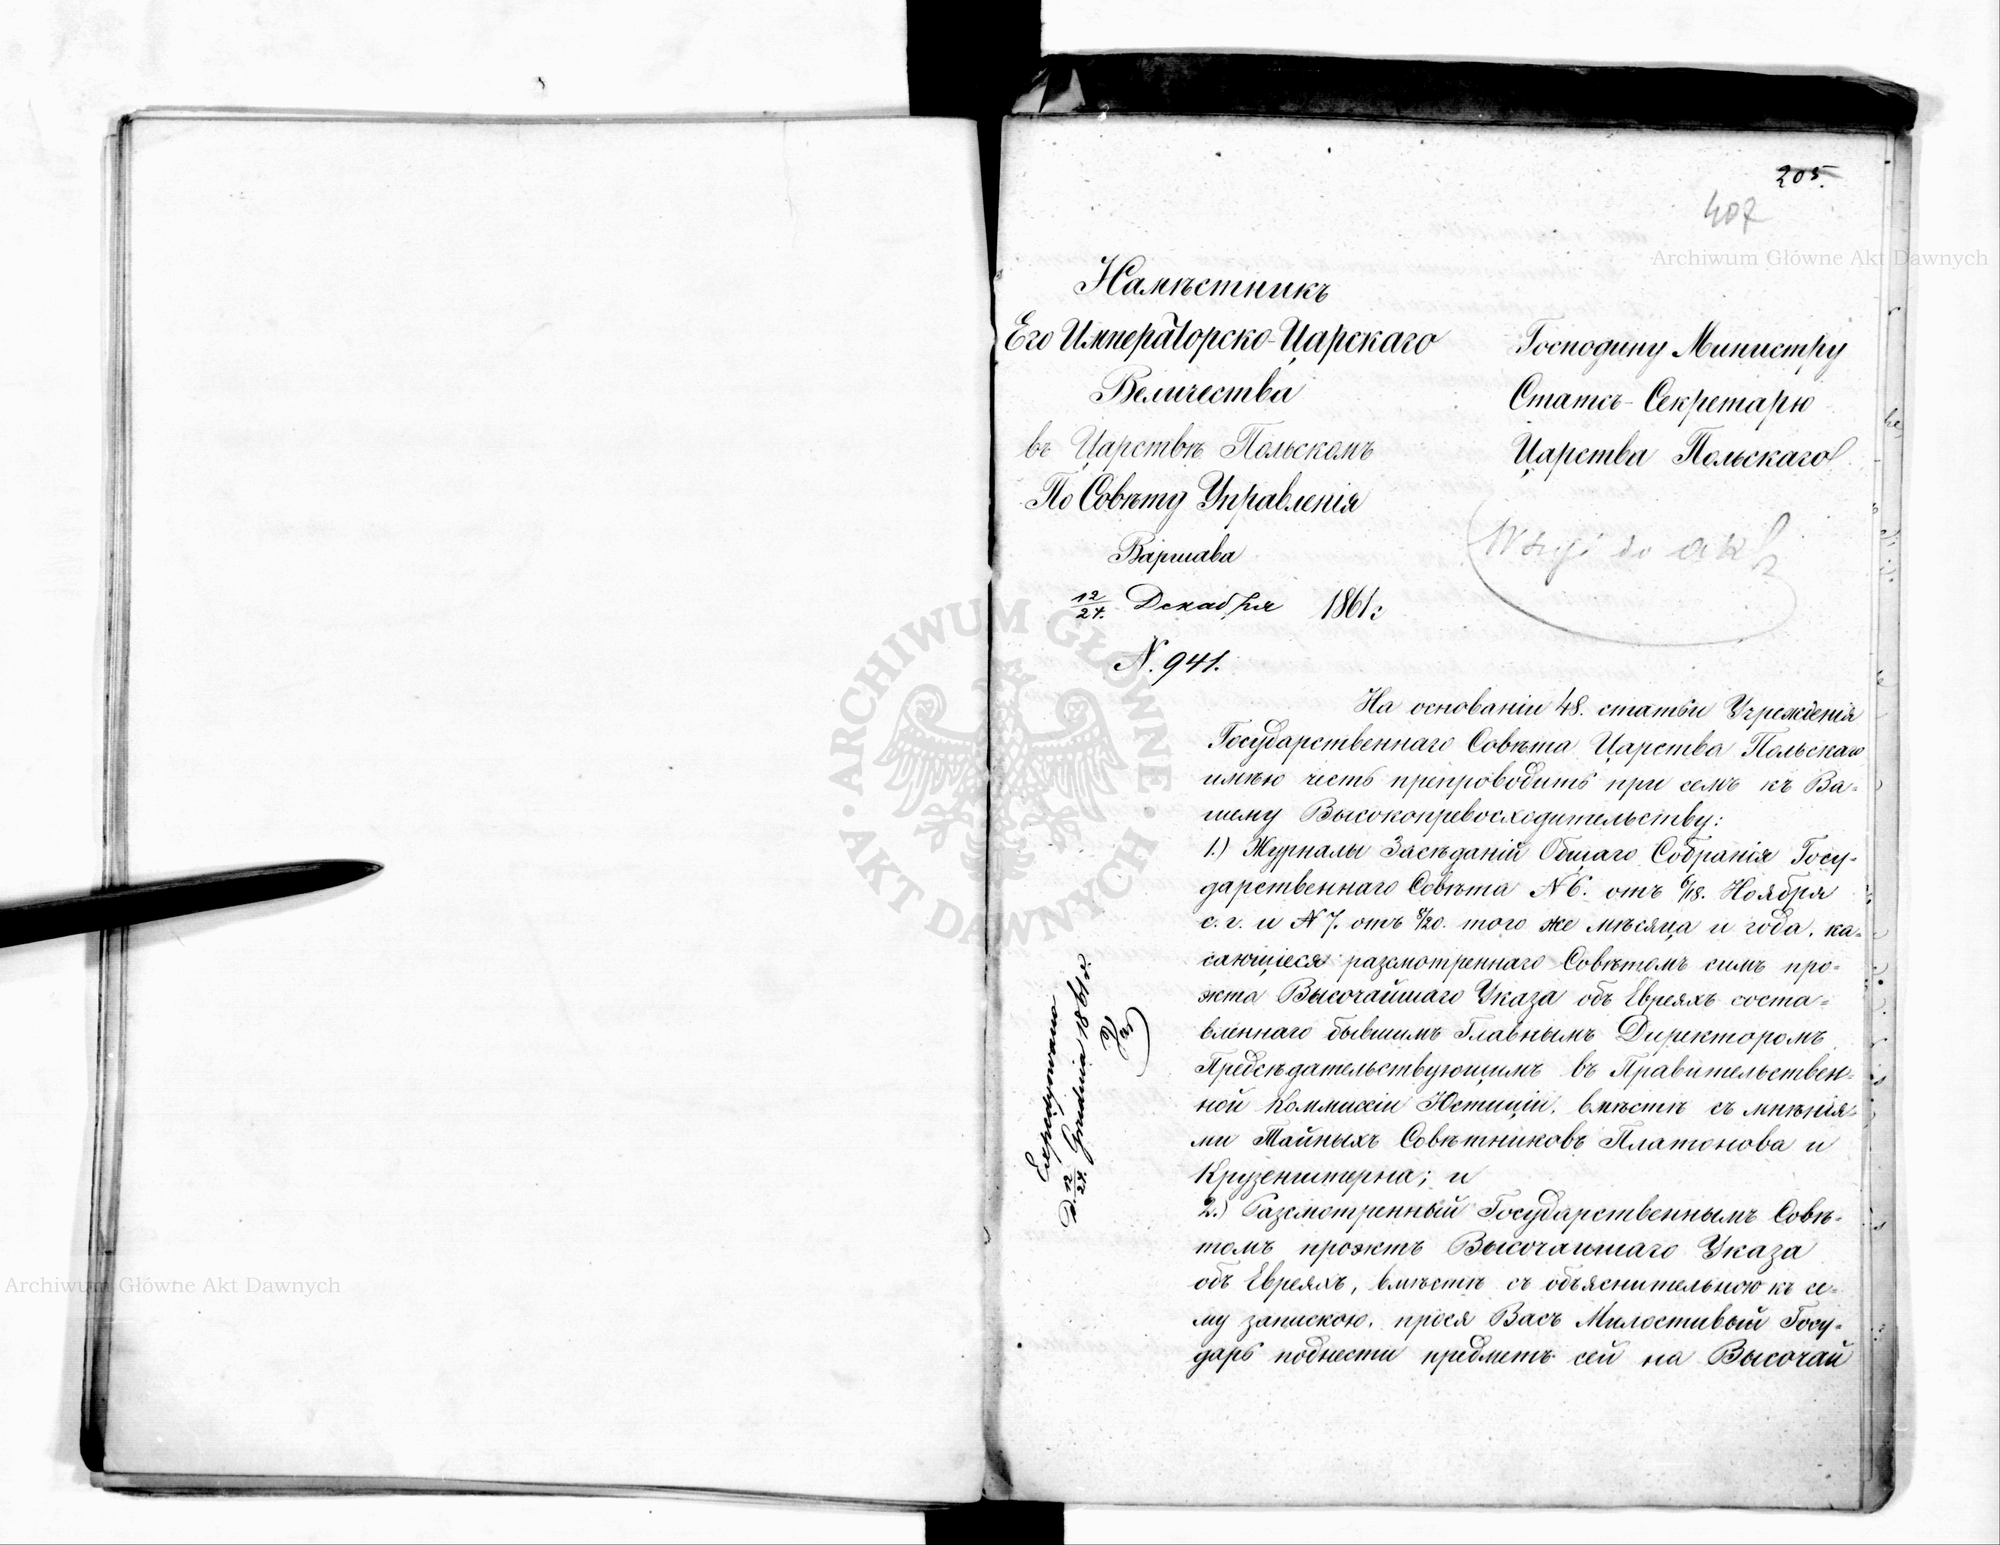 205.
407
Намѣстникъ
Его Императорско-Царскаго
Величества
въ Царствѣ Польскомъ
По Совѣту Управленія
Варшава
12/24. Декабря 1861 г.
N. 941.
Господину Министру
Статсъ-Секретарю
Царства Польскаго
do akt
На основаніи 48. статьи Учрежденія
Государственнаго Совѣта Царства Польскаго
имѣю честь препроводить при семъ къ Ва-
шему Высокопревосходительству:
1.) Журналы Засѣданій Общаго Собранія Госу-
дарственнаго Совѣта N 6. отъ 6/18. Ноября
с. г. и N 7. отъ 8/20. того же мѣсяца и года, ка-
сающіеся разсмотреннаго Совѣтомъ симъ про-
экта Высочайшаго Указа объ Евреяхъ соста-
вленнаго бывшимъ Главнымъ Директоромъ
Предсѣдательствующимъ въ Правительствен-
ной Коммисіи Юстиціи, вмѣстѣ съ мнѣнія-
ми Тайныхъ Совѣтниковъ Платонова и
Крузенштерна; и
2.) Разсмотренный Государственнымъ Совѣ-
томъ проэктъ Высочайшаго Указа
объ Евреяхъ, вмѣстѣ съ объяснительною къ се-
му запискою, прося Васъ Милостивый Госу-
дарь поднести предметъ сей на Высочай
Exerdynowano
d. 12/24. Grudnia 1861 r.
Archiwum Główne Akt Dawnych
Archiwum Główne Akt Dawnych
ARCHIWUM GŁÓWNE · AKT DAWNYCH ·